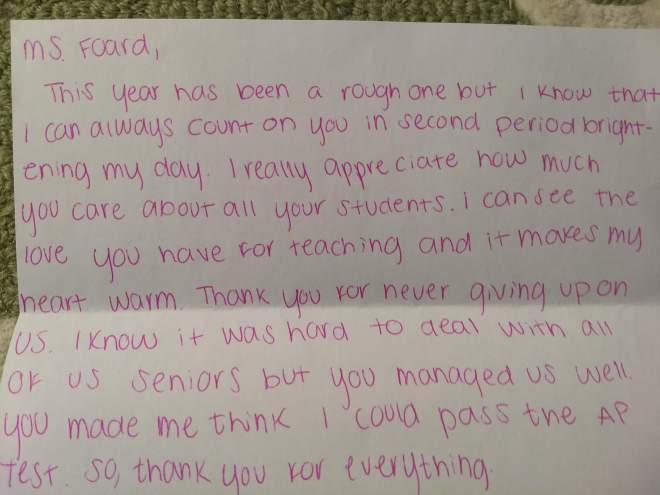 Ms. Foard,
This year has been a rough one but I know that
I can always count on you in second period bright-
ening my day. I really appreciate how much
you care about all your students. i can see the
love you have for teaching and it makes my
heart warm. Thank you for never giving up on
us. I know it was hard to deal with all
of us seniors but you managed us well.
you made me think I could pass the AP
Test. So, thank you for everything.